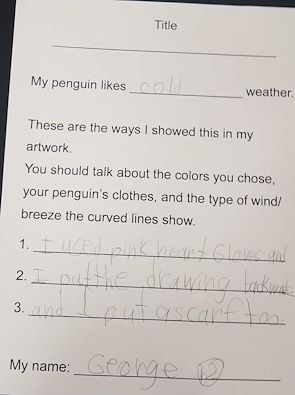 Title
My penguin likes cold weather.
These are the ways I showed this in my
artwork.
You should talk about the colors you chose,
your penguin's clothes, and the type of wind/
breeze the curved lines show.
1. I used pink heart Gloves and
2. I put the drawing backwards
3. and I put a scarf too.
My name: George